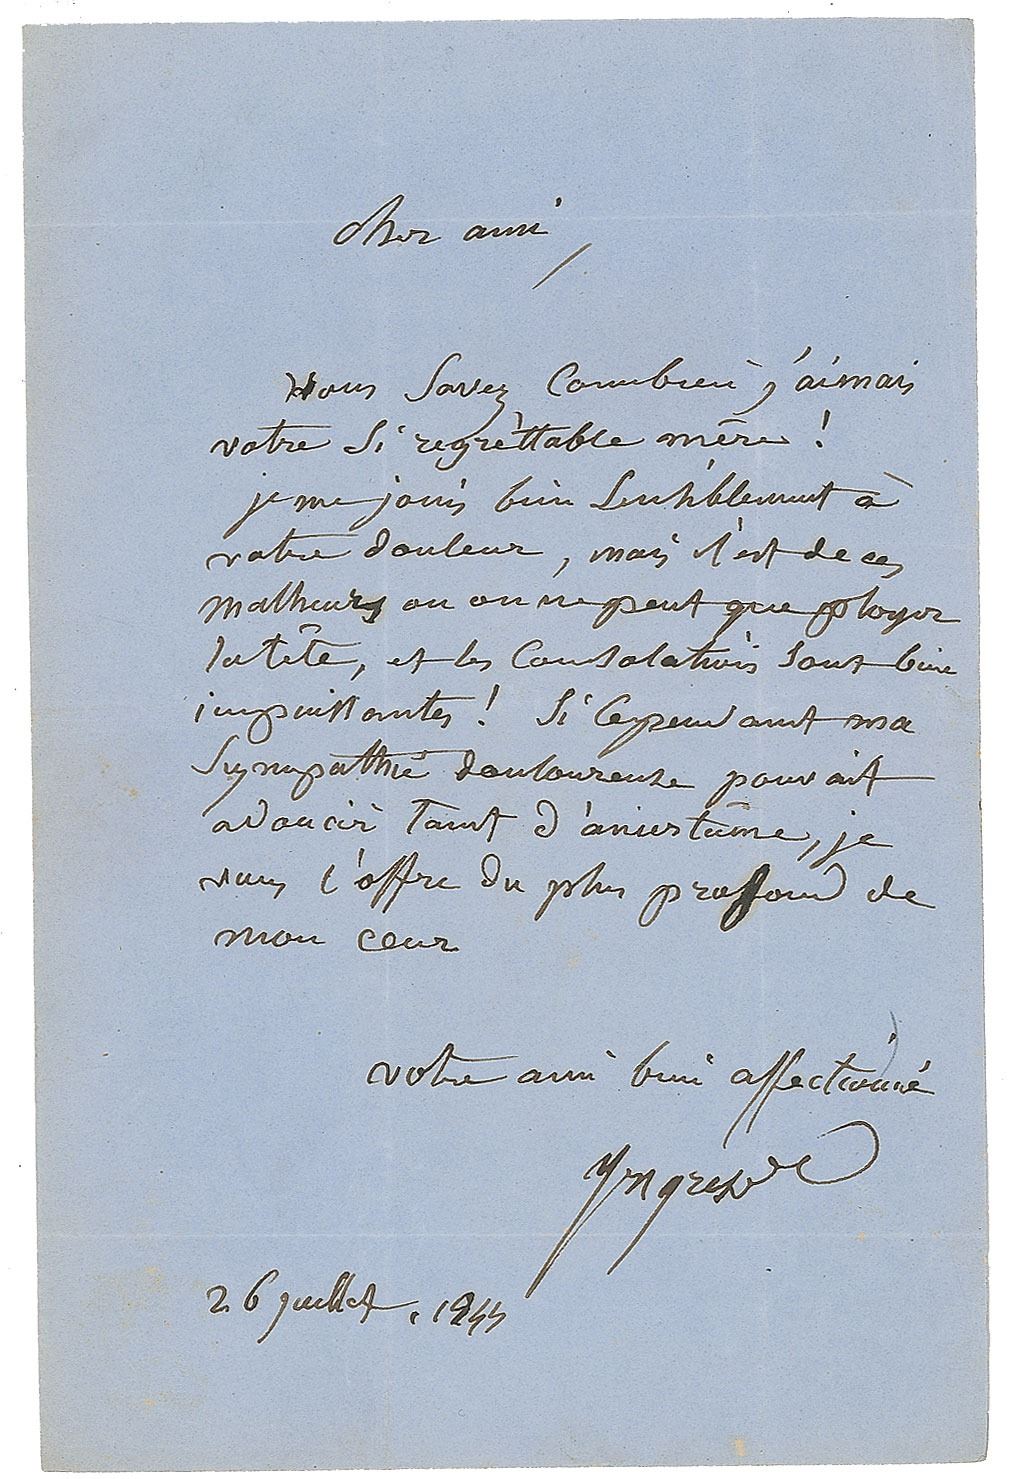 Cher ami,
Vous Savez Combien j'aimais
votre Si regrèttable mère !
je me joins bien Sensiblement à
votre douleur, mais c'est de ces
malheurs ou on ne peut que ployer
la tête, et les Consolations Sont bien
impuissantes ! Si Cependant ma
Sympathie douloureuse pouvait
adoucir Tant d'amertume, je
vous l'offre du plus profond de
mon ceur
votre ami bien affectionné
Yngres
26 juillet. 1844